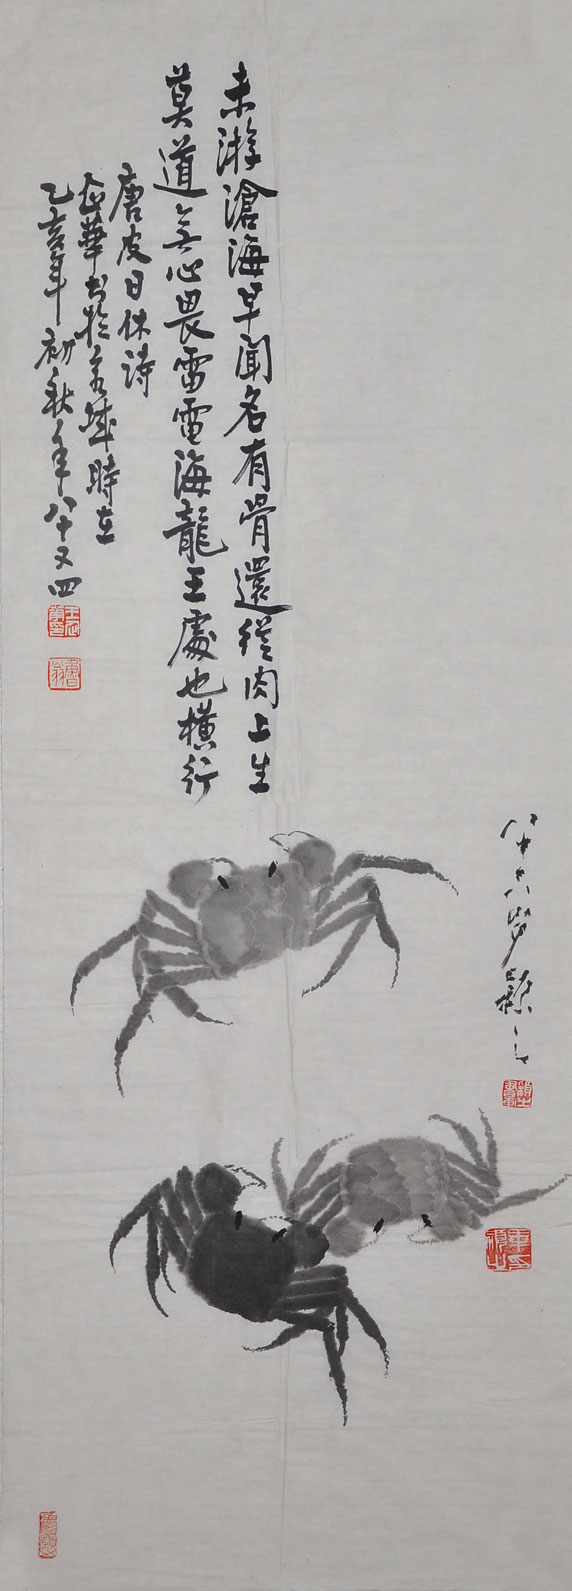 未游滄海早聞名有骨還從肉上生
莫道無心畏雷電海龍王處也橫行
唐皮日休詩
乙亥年初秋年八十又四
八十六歲